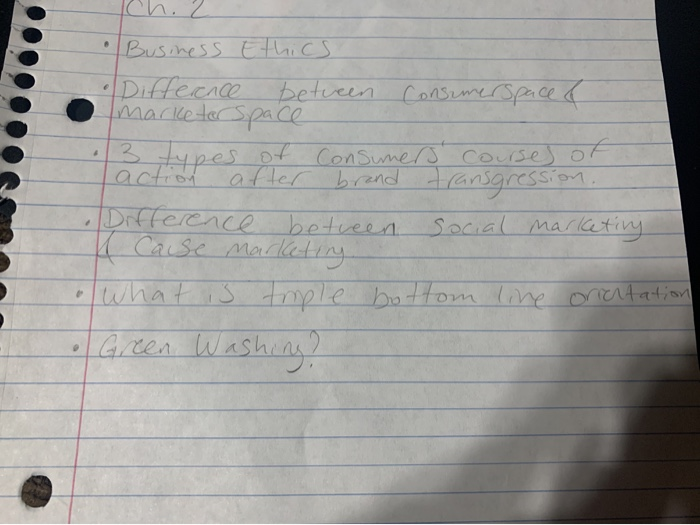 Ch. 2
• Business Ethics
• Difference between Consumerspace &
marketerspace
• 3 types of consumers' courses of
action after brand transgression.
• Difference between Social marketing
& Cause marketing
• What is triple bottom line orientation
• Green Washing?